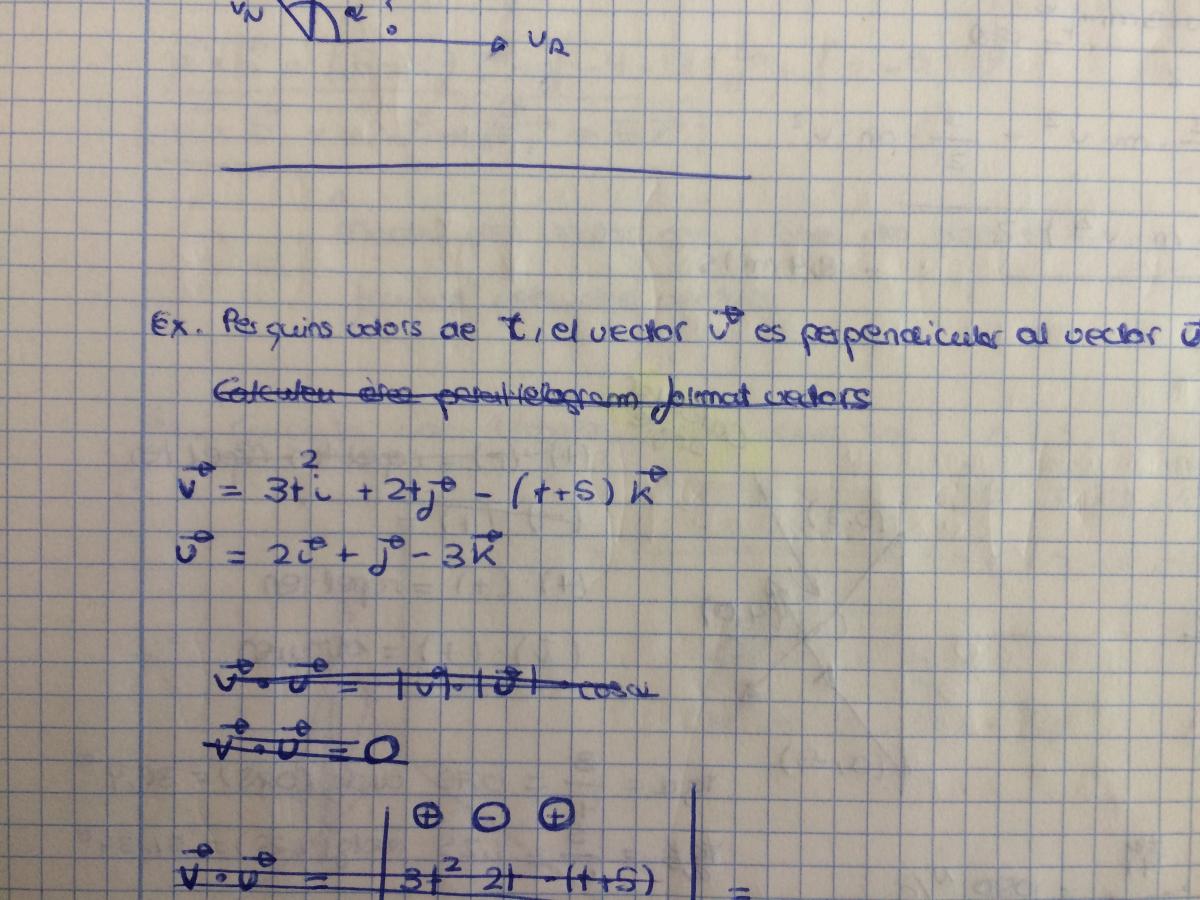 VN α VR
Ex. Per quins valors de t, el vector v es perpendicular al vector u
Calculeu àrea paral·lelogram format vectors
v = 3t²i + 2tj - (t+5) k
u = 2i + j - 3k
v · u = |v| · |u| · cos α
v · u = 0
⊕ ⊖ ⊕
v · u = | 3t² 2t -(t+5) | =